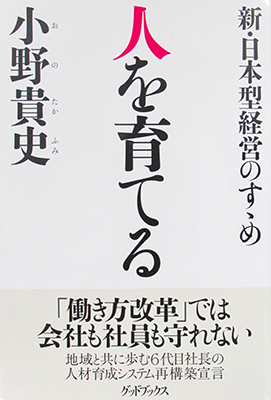 新・日本型経営のすゝめ
人を育てる
小野貴史
おのたかふみ
「働き方改革」では
会社も社員も守れない
地域と共に歩む6代目社長の
人材育成システム再構築宣言
グッドブックス